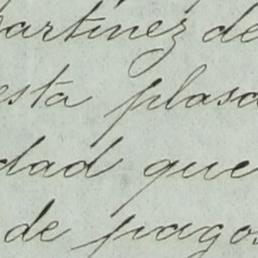 artinez de
esta plasa
dad que
de pagos